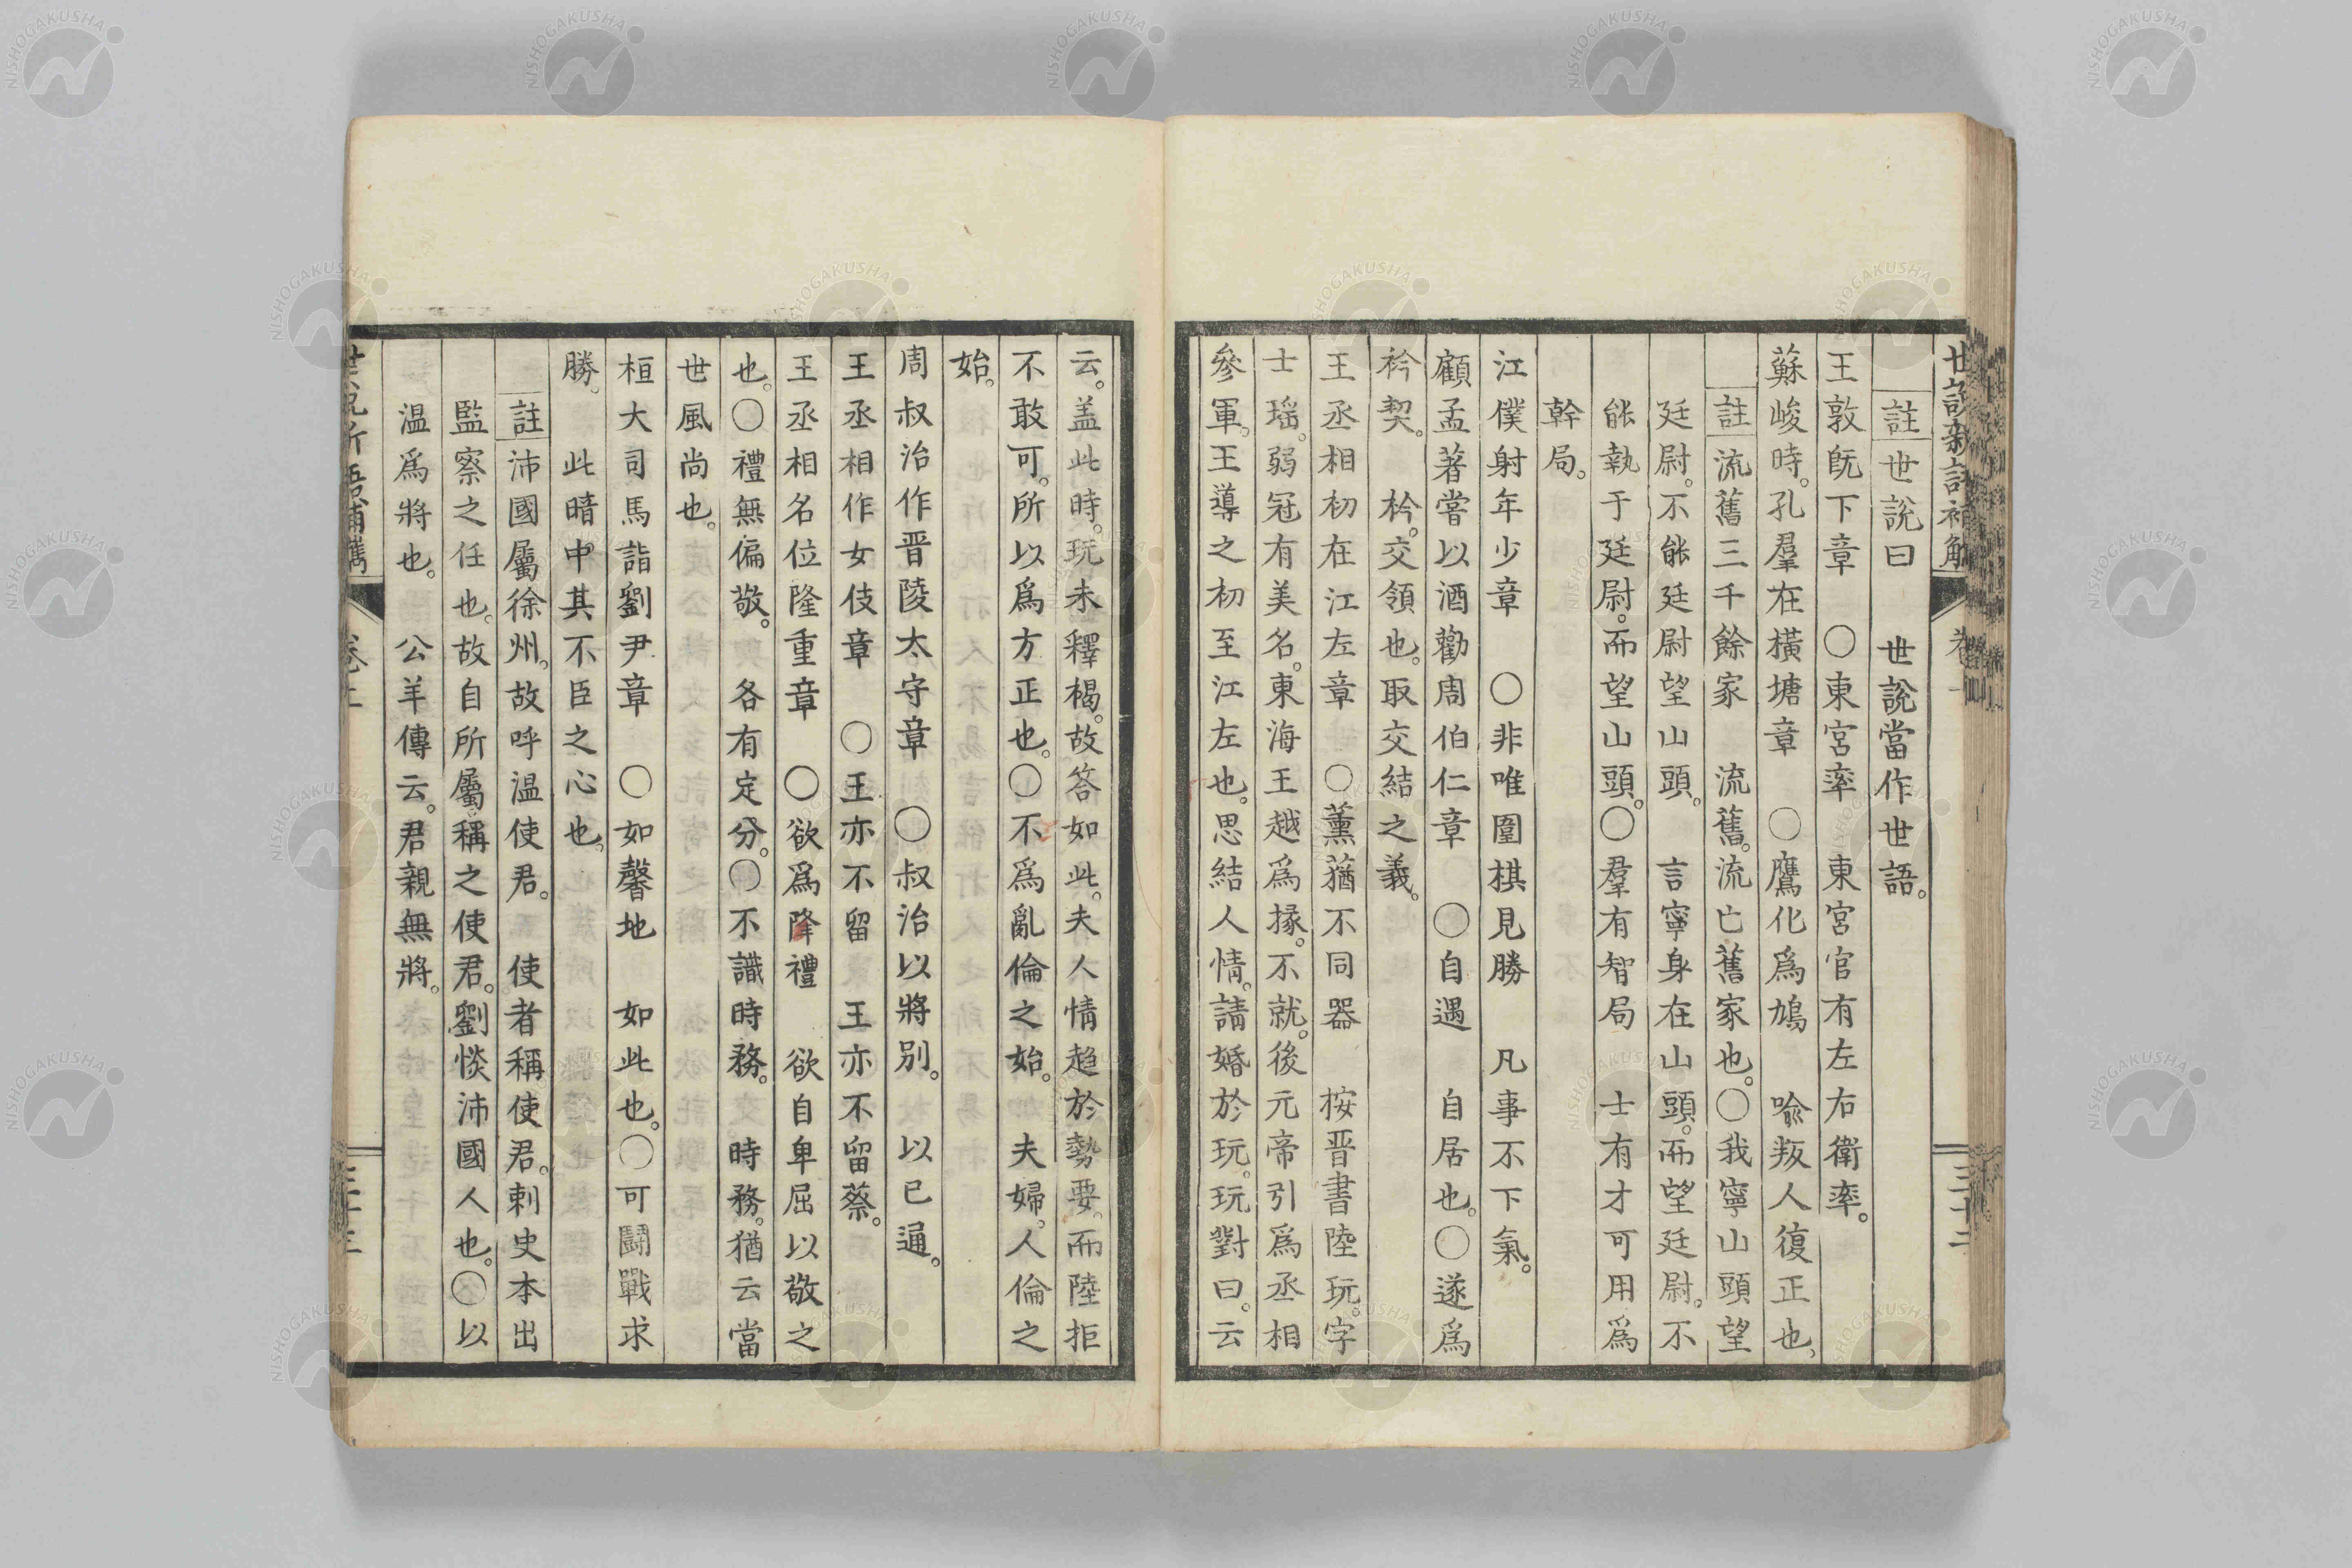 註 世說曰 世說當作世語。
王敦旣下章 ○東宮率 東宮官有左右衛率。
蘇峻時。孔羣在橫塘章 ○鷹化爲鳩 喩叛人復正也。
註 流舊三千餘家 流舊。流亡舊家也。○我寧山頭望
廷尉。不能廷尉望山頭。 言寧身在山頭。而望廷尉。不
能執于廷尉。而望山頭。○羣有智局 士有才可用爲
幹局。
江僕射年少章 ○非唯圍棋見勝 凡事不下氣。
顧孟著嘗以酒勸周伯仁章 ○自遇 自居也。○遂爲
衿契。 衿。交領也。取交結之義。
王丞相初在江左章 ○薰蕕不同器 按晋書陸玩。字
士瑶。弱冠有美名。東海王越爲掾。不就。後元帝引爲丞相
參軍。王導之初至江左也。思結人情。請婚於玩。玩對曰。云
云。盖此時。玩未釋褐。故答如此。夫人情趋於勢要。而陸拒
不敢可。所以爲方正也。○不爲亂倫之始。 夫婦。人倫之
始。
周叔治作晋陵太守章 ○叔治以將别。 以已通。
王丞相作女伎章 ○王亦不留 王亦不留蔡。
王丞相名位隆重章 ○欲爲降禮 欲自卑屈以敬之
也。○禮無偏敬。 各有定分。○不識時務。 時務。猶云當
世風尚也。
桓大司馬詣劉尹章 ○如馨地 如此也。○可鬪戰求
勝。 此暗中其不臣之心也。
註 沛國屬徐州。故呼温使君。 使者稱使君。刺史本出
監察之任也。故自所屬稱之使君。劉惔沛國人也。○以
温爲將也。 公羊傳云。君親無將。
NISHOGAKUSHA